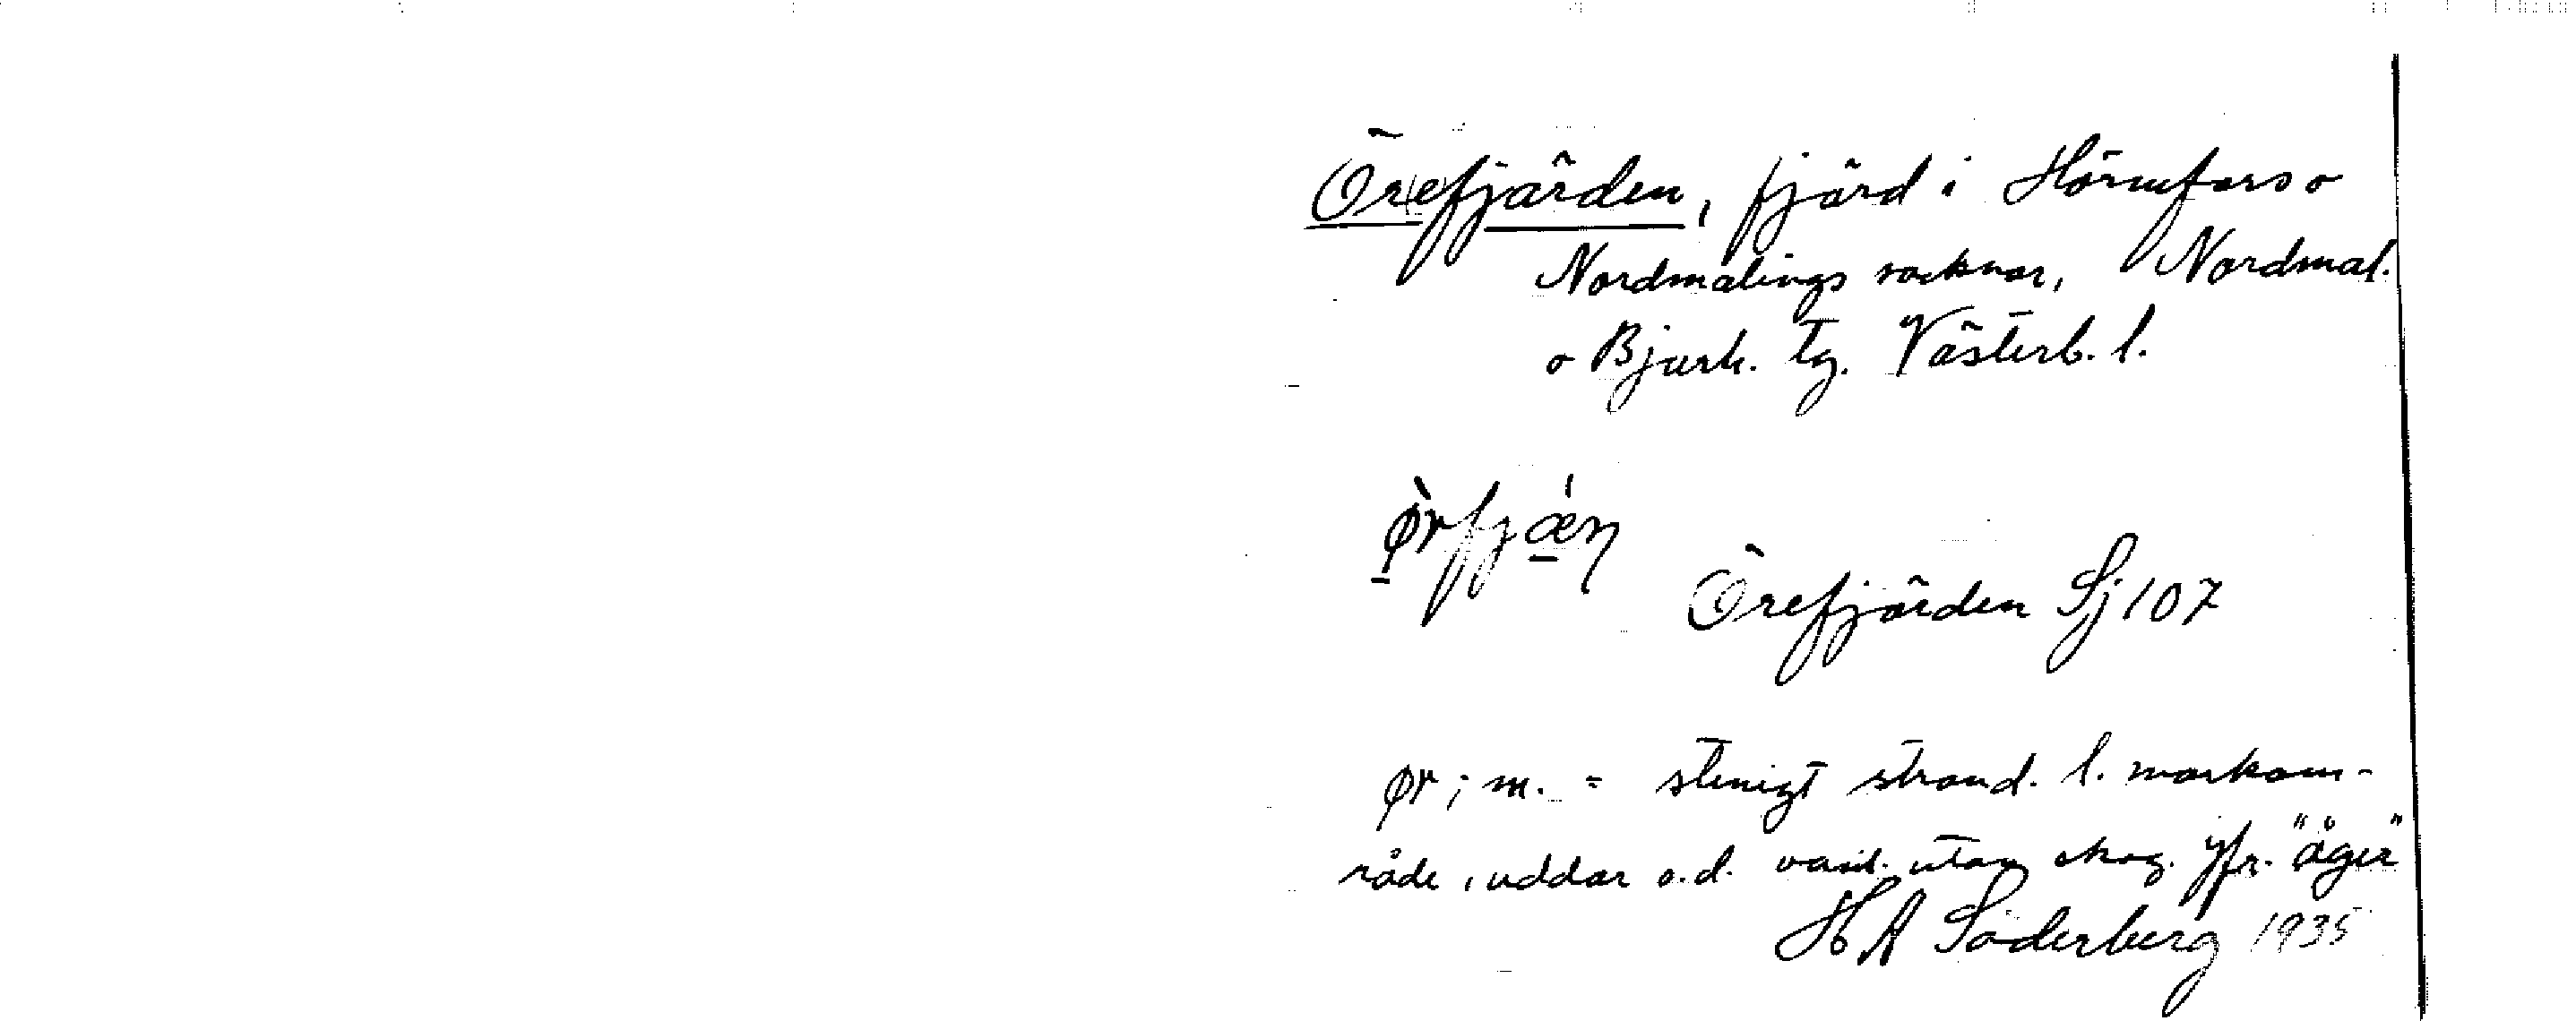 Örefjärden, fjärd i Hörnefors o
Nordmalings socknar, Nordmal.
o Bjurh. tg. Västerb. l.
ø̀rfjǽn
Örefjärden Sj 107
ør; m. = stenigt strand. l. markom-
råde, uddar o.d. vanl. utan skog. Jfr. "åger"
H A Söderberg 1935